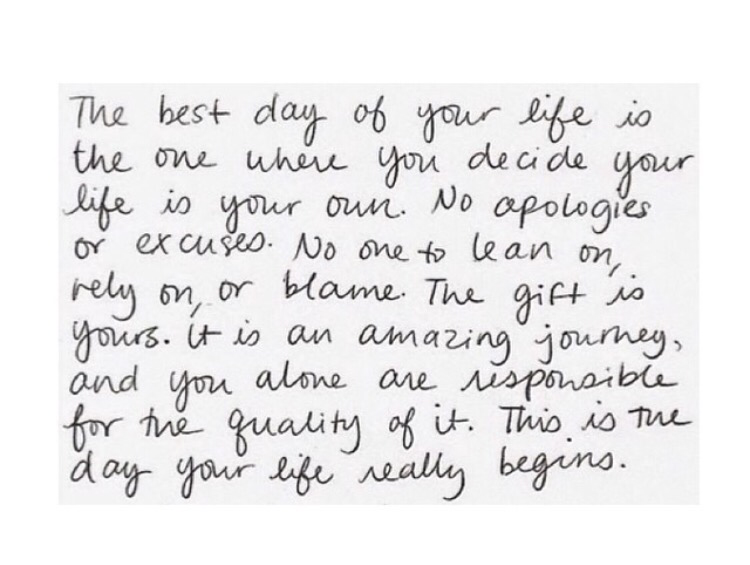 The best day of your life is
the one where you decide your
life is your own. No apologies
or excuses. No one to lean on,
rely on, or blame. The gift is
yours. it is an amazing journey,
and you alone are responsible
for the quality of it. This is the
day your life really begins.